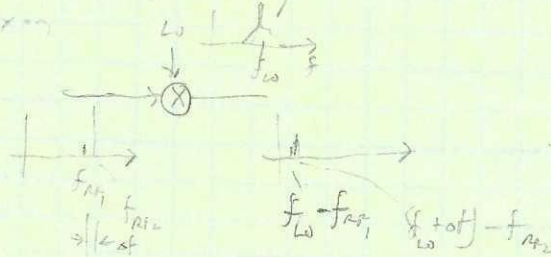 LO
f_LO
f
X
f_RF1
f_RF2
Δf
f_LO - f_RF1
(f_LO + Δf) - f_RF2